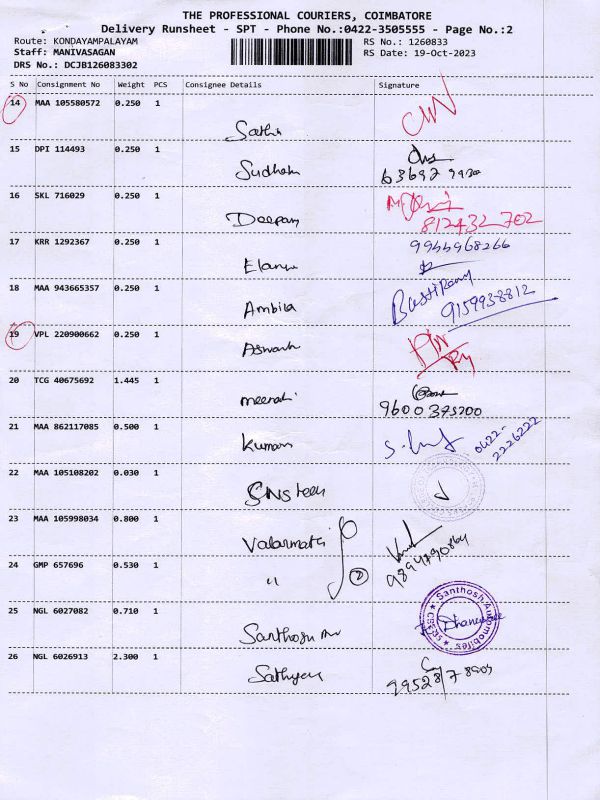 THE PROFESSIONAL COURIERS, COIMBATORE
Delivery Runsheet - SPT - Phone No.:0422-3505555 - Page No.:2
Route: KONDAYAMPALAYAM
RS No.: 1260833
Staff: MANIVASAGAN
RS Date: 19-Oct-2023
DRS No.: DCJB126083302
S No Consignment No Weight PCS Consignee Details Signature
14 MAA 105580572 0.250 1
Sathi
15 DPI 114493 0.250 1
Sudhah
63697 9920
16 SKL 716029 0.250 1
Deepan
812432702
17 KRR 1292367 0.250 1
9944968266
Elann
18 MAA 943665357 0.250 1
Ambika
9159938812
19 VPL 220900662 0.250 1
Aswanth
20 TCG 40675692 1.445 1
meenakshi
9600375200
21 MAA 862117085 0.500 1
Kumar
0422-2226222
22 MAA 105108202 0.030 1
SNS teen
23 MAA 105998034 0.800 1
Valarmathi
9894790864
24 GMP 657696 0.530 1
"
2
25 NGL 6027082 0.710 1
Santhosh
Santhosh Automobiles
26 NGL 6026913 2.300 1
Sathyan